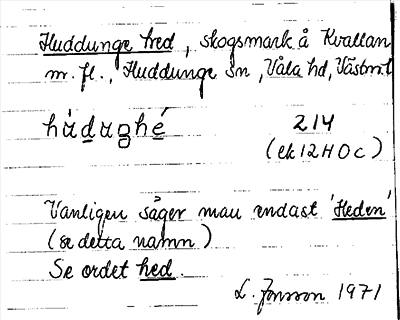 Huddunge hed, skogsmark å Kvallan
m. fl., Huddunge sn, Våla hd, Västm.l
214
(ek 12H0c)
Vanligen säger man endast 'Heden'
(se detta namn)
Se ordet hed.
L. Jonsson 1971